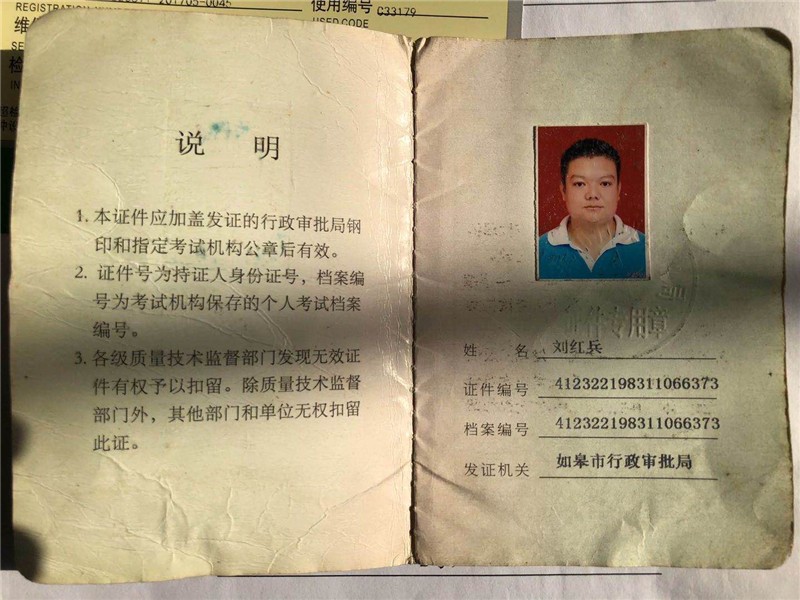 REGISTRATION
201705-0045
使用编号 C33179
USED CODE
说 明
1. 本证件应加盖发证的行政审批局钢
印和指定考试机构公章后有效。
2. 证件号为持证人身份证号，档案编
号为考试机构保存的个人考试档案
编号。
3. 各级质量技术监督部门发现无效证
件有权予以扣留。除质量技术监督
部门外，其他部门和单位无权扣留
此证。
证件专用章
姓 名 刘红兵
证件编号 412322198311066373
档案编号 412322198311066373
发证机关 如皋市行政审批局